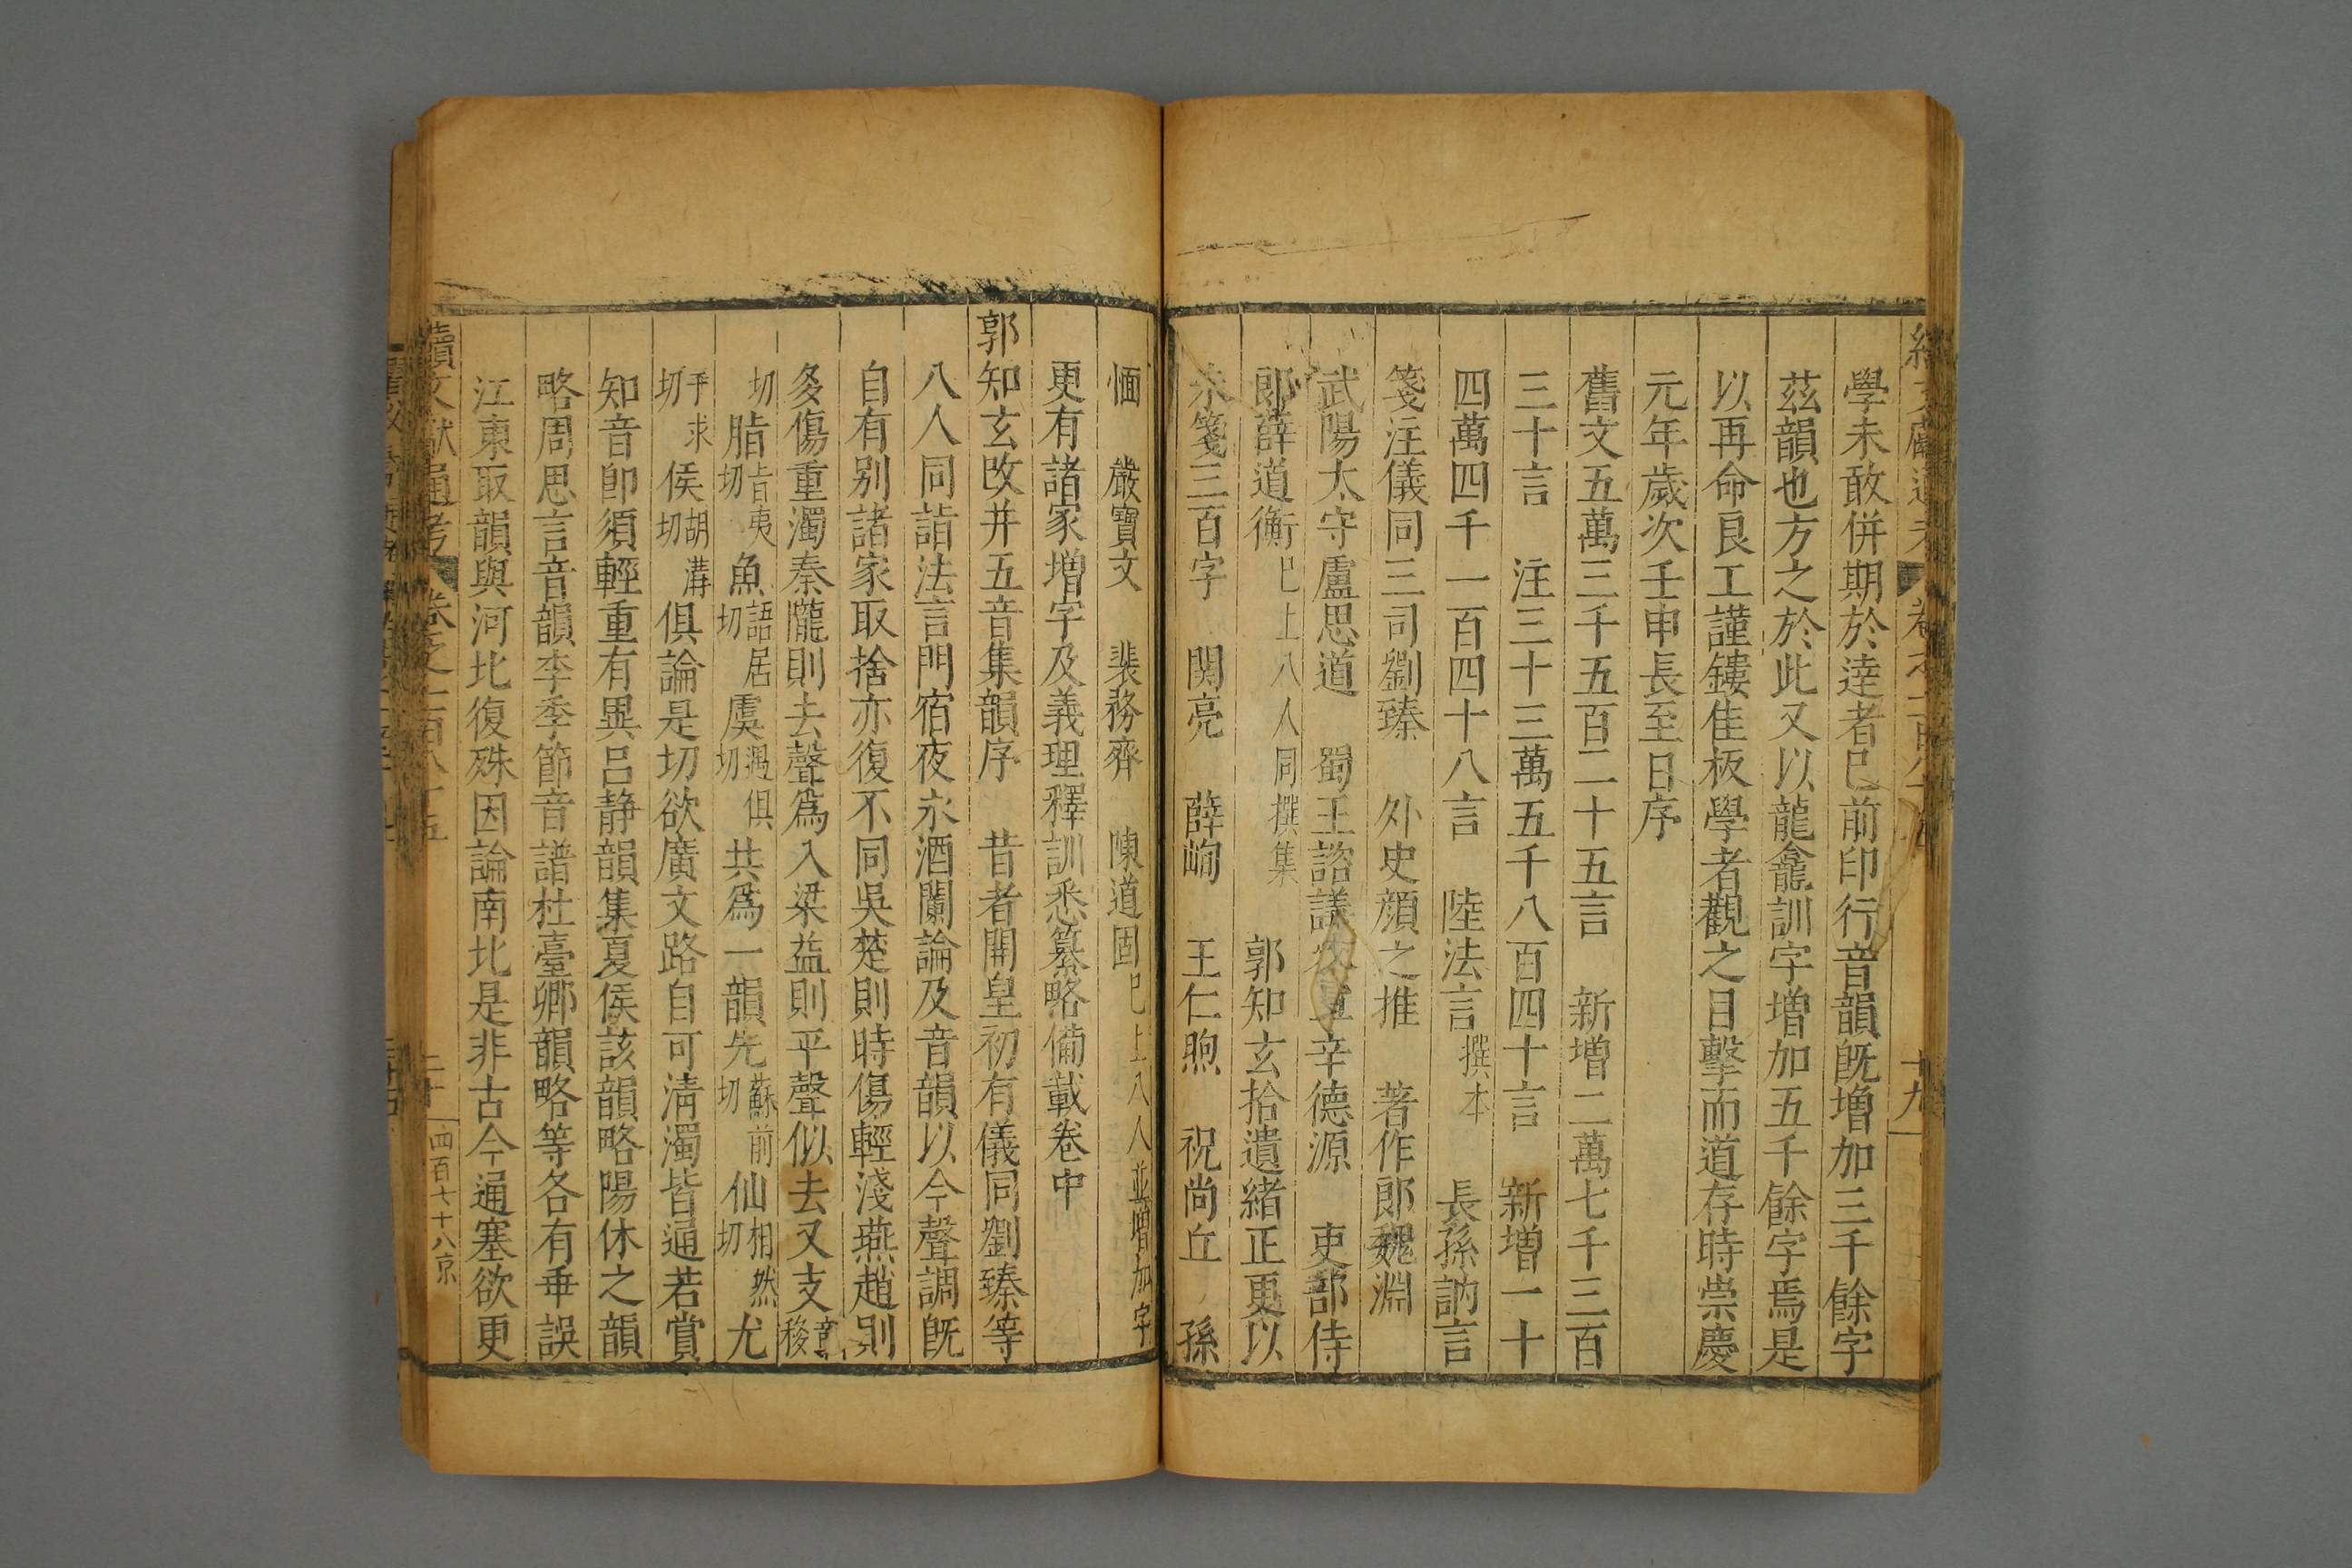 學未敢併期於逹者已前印行音韻既增加三千餘字
茲韻也方之於此又以龍龕訓字增加五千餘字焉是
以再命良工謹鏤佳板學者觀之目擊而道存時崇慶
元年歲次壬申長至日序
舊文五萬三千五百二十五言 新增二萬七千三百
三十言 注三十三萬五千八百四十言 新增一十
四萬四千一百四十八言 陸法言撰本 長孫訥言
箋注儀同三司劉臻 外史顔之推 著作郎魏淵
武陽太守盧思道 蜀王諮議參軍辛德源 吏部侍
郎薛道衡已上八人同撰集 郭知玄拾遺緒正更以
朱箋三百字 関亮 薛峋 王仁煦 祝尚丘 孫
愐 嚴寶文 裴務齊 陳道固已上八人並增加字
更有諸家增字及義理釋訓悉纂略備載卷中
郭知玄改并五音集韻序 昔者開皇初有儀同劉臻等
八人同詣法言門宿夜永酒闌論及音韻以今聲調既
自有别諸家取捨亦復不同吳楚則時傷輕淺燕趙則
多傷重濁秦隴則去聲爲入梁益則平聲似去又支章移
切脂旨夷切魚語居切虞遇俱切共爲一韻先蘇前切仙相然切尤
于求切侯胡溝切俱論是切欲廣文路自可淸濁皆通若賞
知音卽須輕重有異呂静韻集夏侯該韻略陽休之韻
略周思言音韻李季節音譜杜臺卿韻略等各有乖誤
江東取韻與河北復殊因論南北是非古今通塞欲更
續文獻通考 卷之一百八十五 二十 四百七十八京